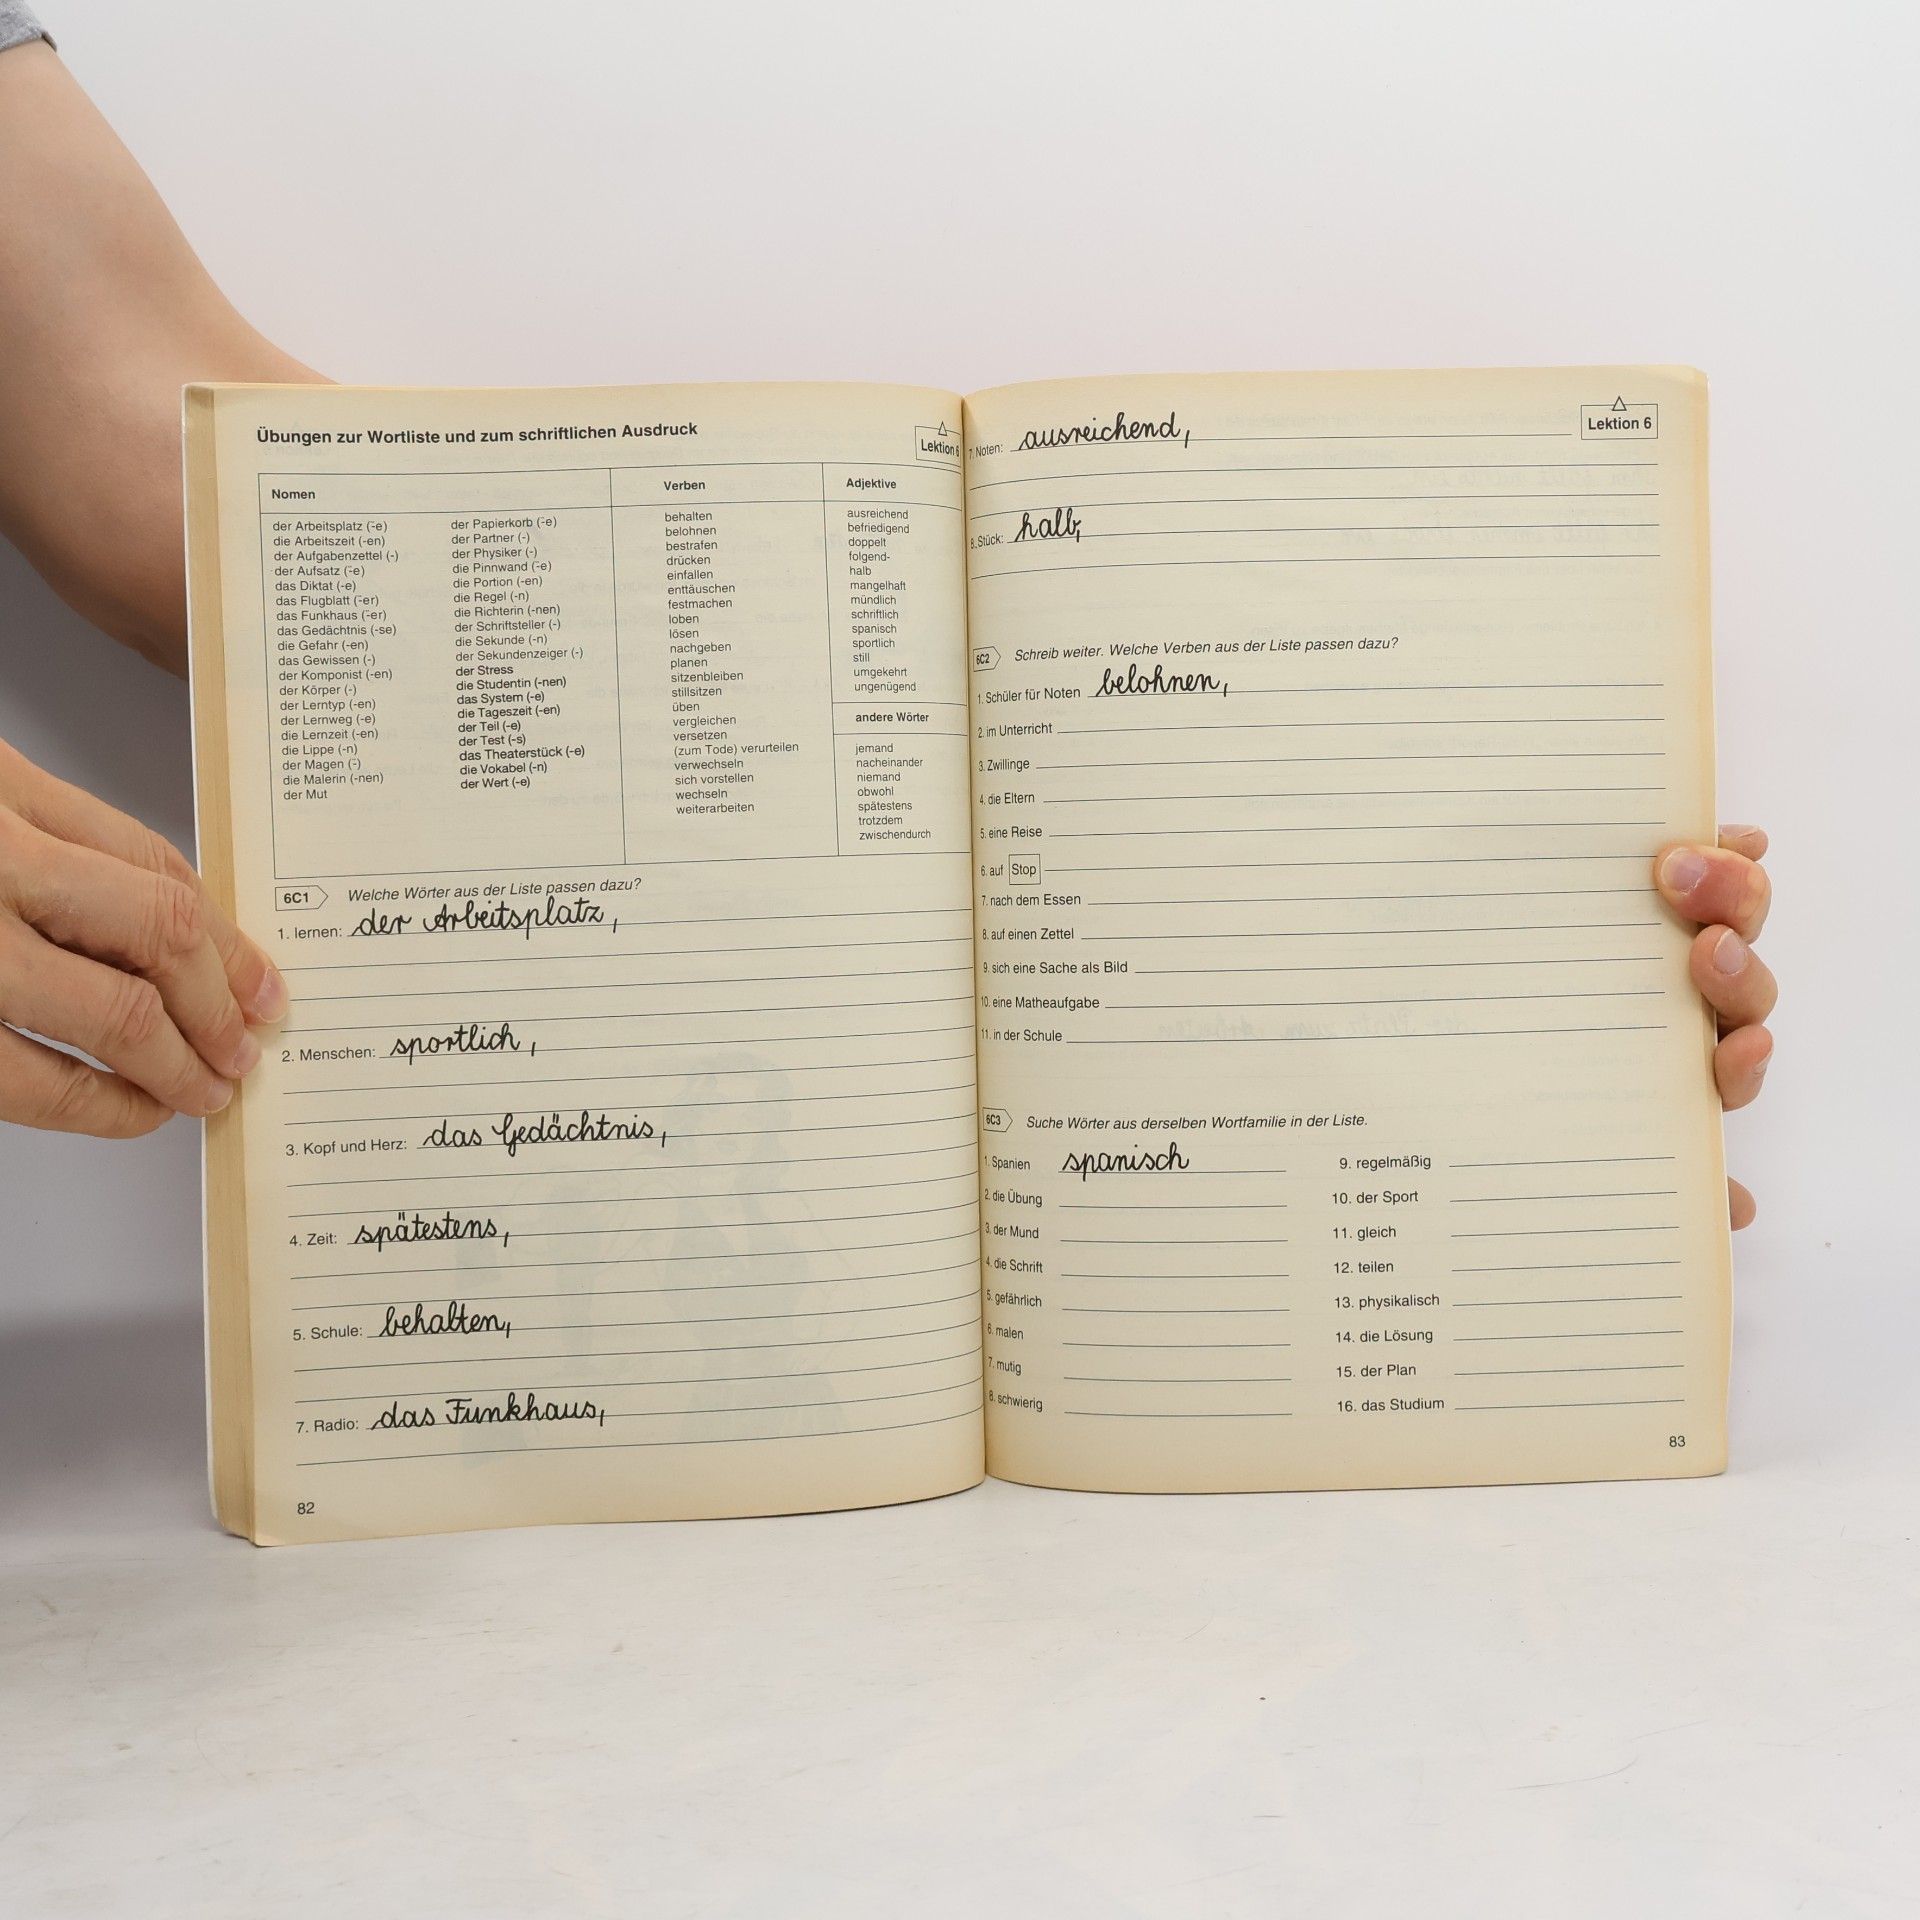 Übungen zur Wortliste und zum schriftlichen Ausdruck
Lektion 6
Nomen
der Arbeitsplatz (¨-e)
die Arbeitszeit (-en)
der Aufgabenzettel (-)
der Aufsatz (¨-e)
das Diktat (-e)
das Flugblatt (¨-er)
das Funkhaus (¨-er)
das Gedächtnis (-se)
die Gefahr (-en)
das Gewissen (-)
der Komponist (-en)
der Körper (-)
der Lerntyp (-en)
der Lernweg (-e)
die Lernzeit (-en)
die Lippe (-n)
der Magen (¨-)
die Malerin (-nen)
der Mut
der Papierkorb (¨-e)
der Partner (-)
der Physiker (-)
die Pinnwand (¨-e)
die Portion (-en)
die Regel (-n)
die Richterin (-nen)
der Schriftsteller (-)
die Sekunde (-n)
der Sekundenzeiger (-)
der Stress
die Studentin (-nen)
das System (-e)
die Tageszeit (-en)
der Teil (-e)
der Test (-s)
das Theaterstück (-e)
die Vokabel (-n)
der Wert (-e)
Verben
behalten
belohnen
bestrafen
drücken
einfallen
enttäuschen
festmachen
loben
lösen
nachgeben
planen
sitzenbleiben
stillsitzen
üben
vergleichen
versetzen
(zum Tode) verurteilen
verwechseln
sich vorstellen
wechseln
weiterarbeiten
Adjektive
ausreichend
befriedigend
doppelt
folgend-
halb
mangelhaft
mündlich
schriftlich
spanisch
sportlich
still
umgekehrt
ungenügend
andere Wörter
jemand
nacheinander
niemand
obwohl
spätestens
trotzdem
zwischendurch
6C1 Welche Wörter aus der Liste passen dazu?
1. lernen: der Arbeitsplatz,
2. Menschen: sportlich,
3. Kopf und Herz: das Gedächtnis,
4. Zeit: spätestens,
5. Schule: behalten,
7. Radio: das Funkhaus,
82
Lektion 6
7. Noten: ausreichend,
8. Stück: halb,
6C2 Schreib weiter. Welche Verben aus der Liste passen dazu?
1. Schüler für Noten belohnen,
2. im Unterricht
3. Zwillinge
4. die Eltern
5. eine Reise
6. auf Stop
7. nach dem Essen
8. auf einen Zettel
9. sich eine Sache als Bild
10. eine Matheaufgabe
11. in der Schule
6C3 Suche Wörter aus derselben Wortfamilie in der Liste.
1. Spanien spanisch
2. die Übung
3. der Mund
4. die Schrift
5. gefährlich
6. malen
7. mutig
8. schwierig
9. regelmäßig
10. der Sport
11. gleich
12. teilen
13. physikalisch
14. die Lösung
15. der Plan
16. das Studium
83